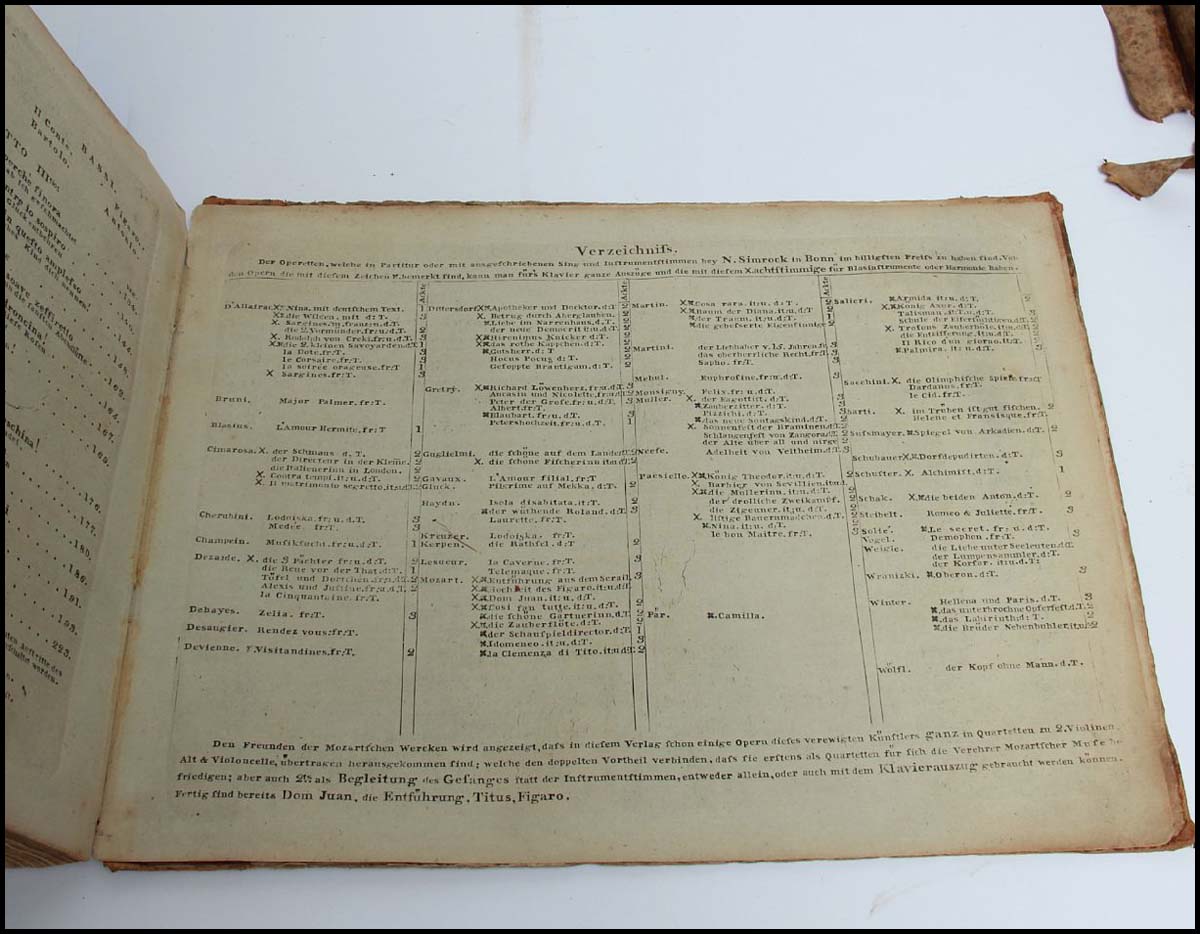 Il Conte. BASSI. Figaro.
Bartolo. Antonio.
TTO III:
perchè finora
o tanto io sospiro
n questo amplesso
146.
161.
163.
164.
167.
169.
176.
177.
180.
186.
191.
198.
223.
Verzeichniſs.
Der Operetten, welche in Partitur oder mit ausgeſchriebenen Sing und Inſtrumentſtimmen bey N. Simrock in Bonn im billigſten Preiſs zu haben ſind. Von
den Opern die mit dieſem Zeichen bemerkt ſind, kann man fürs Klavier ganze Auszüge und die mit dieſem X achtſtimmige für Blasinſtrumente oder Harmonie haben.
Ackte
D'Allairac. X. Nina. mit deutſchem Text. 1
X die Wilden. mit d: T. 3
X. Sargines. franz: u. d:T.
die 2 Vormünder. fr: u. d:T. 2
X. Rodolph von Creki. fr: u. d:T. 3
X die 2 kleinen Savoyarden. d:T. 1
la Dote. fr: T. 3
le Corsaire. fr: T. 3
la soirée orageuse. fr: T 1
X Sargines. fr: T. 3
Bruni. Major Palmer. fr: T. 3
Blasius. L'Amour Hermite. fr: T 1
Cimarosa. X. der Schmaus d. T. 2
der Directeur in der Kleine. 2
die Italienerinn in London. 2
X. Contra tempi. it: u. d:T. 2
X. Il matrimonio segretto. it: u. d:T. 2
Cherubini. Lodoiska. fr: u. d. T. 3
Medée. fr: T. 3
Champein. Muſikſucht. fr: u. d. T. 1
Dezaide. X. die 3 Pächter fr: u. d: T. 2
die Reue vor der That. d: T. 1
Töffel und Dortchen. fr: u. d:T. 2
Alexis und Juſtine. fr: u. d:T. 2
la Cinquantaine. fr. T.
Dehayes. Zelia. fr: T. 3
Desaugier. Rendez vous: fr: T.
Devienne. Visitandines. fr: T. 2
Ackte
Dittersdorf. Apotheker und Docktor. d: T 2
X. Betrug durch Aberglauben. 2
Liebe im Narrenhaus. d. T. 2
der neue Democrit it: u. d:T. 2
Hironimus Knicker d: T. 2
das rothe Käppchen. d: T. 2
Gutsherr. d: T 2
Hocus Pocus d: T. 2
Gefoppte Bräutigam. d: T. 2
Gretry. Richard Löwenherz. fr: u. d:T. 3
Aucasin und Nicolette. fr: u. d:T. 2
Peter der Groſse. fr: u. d. T. 3
Albert. fr: T.
Blaubart. fr: u. d. T. 3
Petershochzeit. fr: u. d. T. 1
Guglielmi. die ſchöne auf dem Lande. 2
X. die ſchöne Fiſcherinn. it: d:T. 2
Gavaux. L'Amour filial. fr: T
Gluck. Pilgrime auf Mekka. d: T. 2
Haydn. Isola disabitata. it: T. 2
der wüthende Roland. d: T. 3
Laurette. fr: T.
Kreuzer. Lodoiska. fr: T
Kerpen. die Räthſel. d: T 2
Lesueur. la Caverne. fr: T. 3
Telemaque. fr: T. 3
Mozart. Entführung aus dem Serail. 3
Hochzeit des Figaro. it: u. d:T.
Dom Juan. it: u. d:T.
Cosi fan tutte. it: u. d. T. 2
die ſchöne Gärtnerinn. d: T. 2
die Zauberflöte. d: T. 2
der Schauſpieldirector. d: T. 1
Idomeneo. it: u. d: T. 3
la Clemenza di Tito. it: u. d:T. 2
Ackte
Martin. Cosa rara. it: u. d: T. 2
Baum der Diana. it: u. d: T 2
der Traum. it: u. d: T. 2
die gebeſserte Eigenſinnige. 2
Martini. der Liebhaber v. 15. Jahren. fr: 3
das oberherrliche Recht. fr: T. 3
Sapho. fr: T. 3
Mehul. Euphroſine. fr: u. d:T. 3
Monsigny. Felix. fr: u. d: T. 3
Müller. X. der Fagottiſt. d: T. 3
Zauberzitter. d: T.
Pizzichi. d: T.
das neue Sontagskind. d: T. 2
X. Sonnenfeſt der Braminen. d: T. 2
Schlangenfeſt von Zangora. d:T. 2
der Alte über all und nirgs 2
Neefe. Adelheit von Veltheim. d: T. 3
Paesielle. König Theodor. it: u. d: T 2
X. Barbier von Sevillien. it: u. d. 2
die Müllerinn. it: u. d: T.
der drollige Zweikampf. 2
die Zigeuner. it: u. d: T. 2
X. liſtige Bauernmädchen. d: T. 2
Nina. it: u. d: T. 2
le bon Maitre. fr: T. 3
Pär. Camilla.
Salieri. Armida. it: u. d: T. 2
König Axur. d: T.
Talisman. it: T. u. d: T 3
Schule der Eiferſüchtigen. d: T. 2
X. Trofons Zauberhöle. it: u. d:T. 2
die Entzifferung. it: u. d: T. 2
Il Rico d'un giorno. it: T. 3
Palmira. it: u. d: T. 3
Sacchini. X. die Olimpiſche Spiele. fr: T
Dardanus. fr: T.
le Cid. fr: T.
Sarti. X. im Trüben iſt gut fiſchen. 3
Helene et Fransisque. fr: T.
Suſsmayer. Spiegel von Arkadien. d: T. 2
Schubauer. Dorfdepudirten. d: T. 3
Schuſter. X. Alchimiſt. d: T. 1
Schak. die beiden Anton. d: T. 2
Steibelt. Romeo & Juliette. fr: T. 3
Solié. Le secret. fr: u. d. T.
Vogel. Demophon. fr: T. 3
Weigle. die Liebe unter Seeleuten. d:T. 2
der Lumpensammler. d: T.
der Korſar. it: u. d: T: 2
Wranizki. Oberon. d: T. 3
Winter. Hellena und Paris. d. T. 3
das unterbrochne Opferfeſt. d: T. 2
das Labirinth. d: T. 2
die Brüder Nebenbuhler. it: u. 2
Wölfl. der Kopf ohne Mann. d. T.
Den Freunden der Mozartſchen Wercken wird angezeigt, daſs in dieſem Verlag ſchon einige Opern dieſes verewigten Künſtlers ganz in Quartetten zu 2. Violinen
Alt & Violoncelle, übertragen herausgekommen ſind; welche den doppelten Vortheil verbinden, daſs ſie erſtens als Quartetten für ſich die Verehrer Mozartſcher Muſe be-
friedigen; aber auch 2tt: als Begleitung des Geſanges ſtatt der Inſtrumentſtimmen, entweder allein, oder auch mit dem Klavierauszug gebraucht werden können.
Fertig ſind bereits Dom Juan, die Entführung, Titus, Figaro.